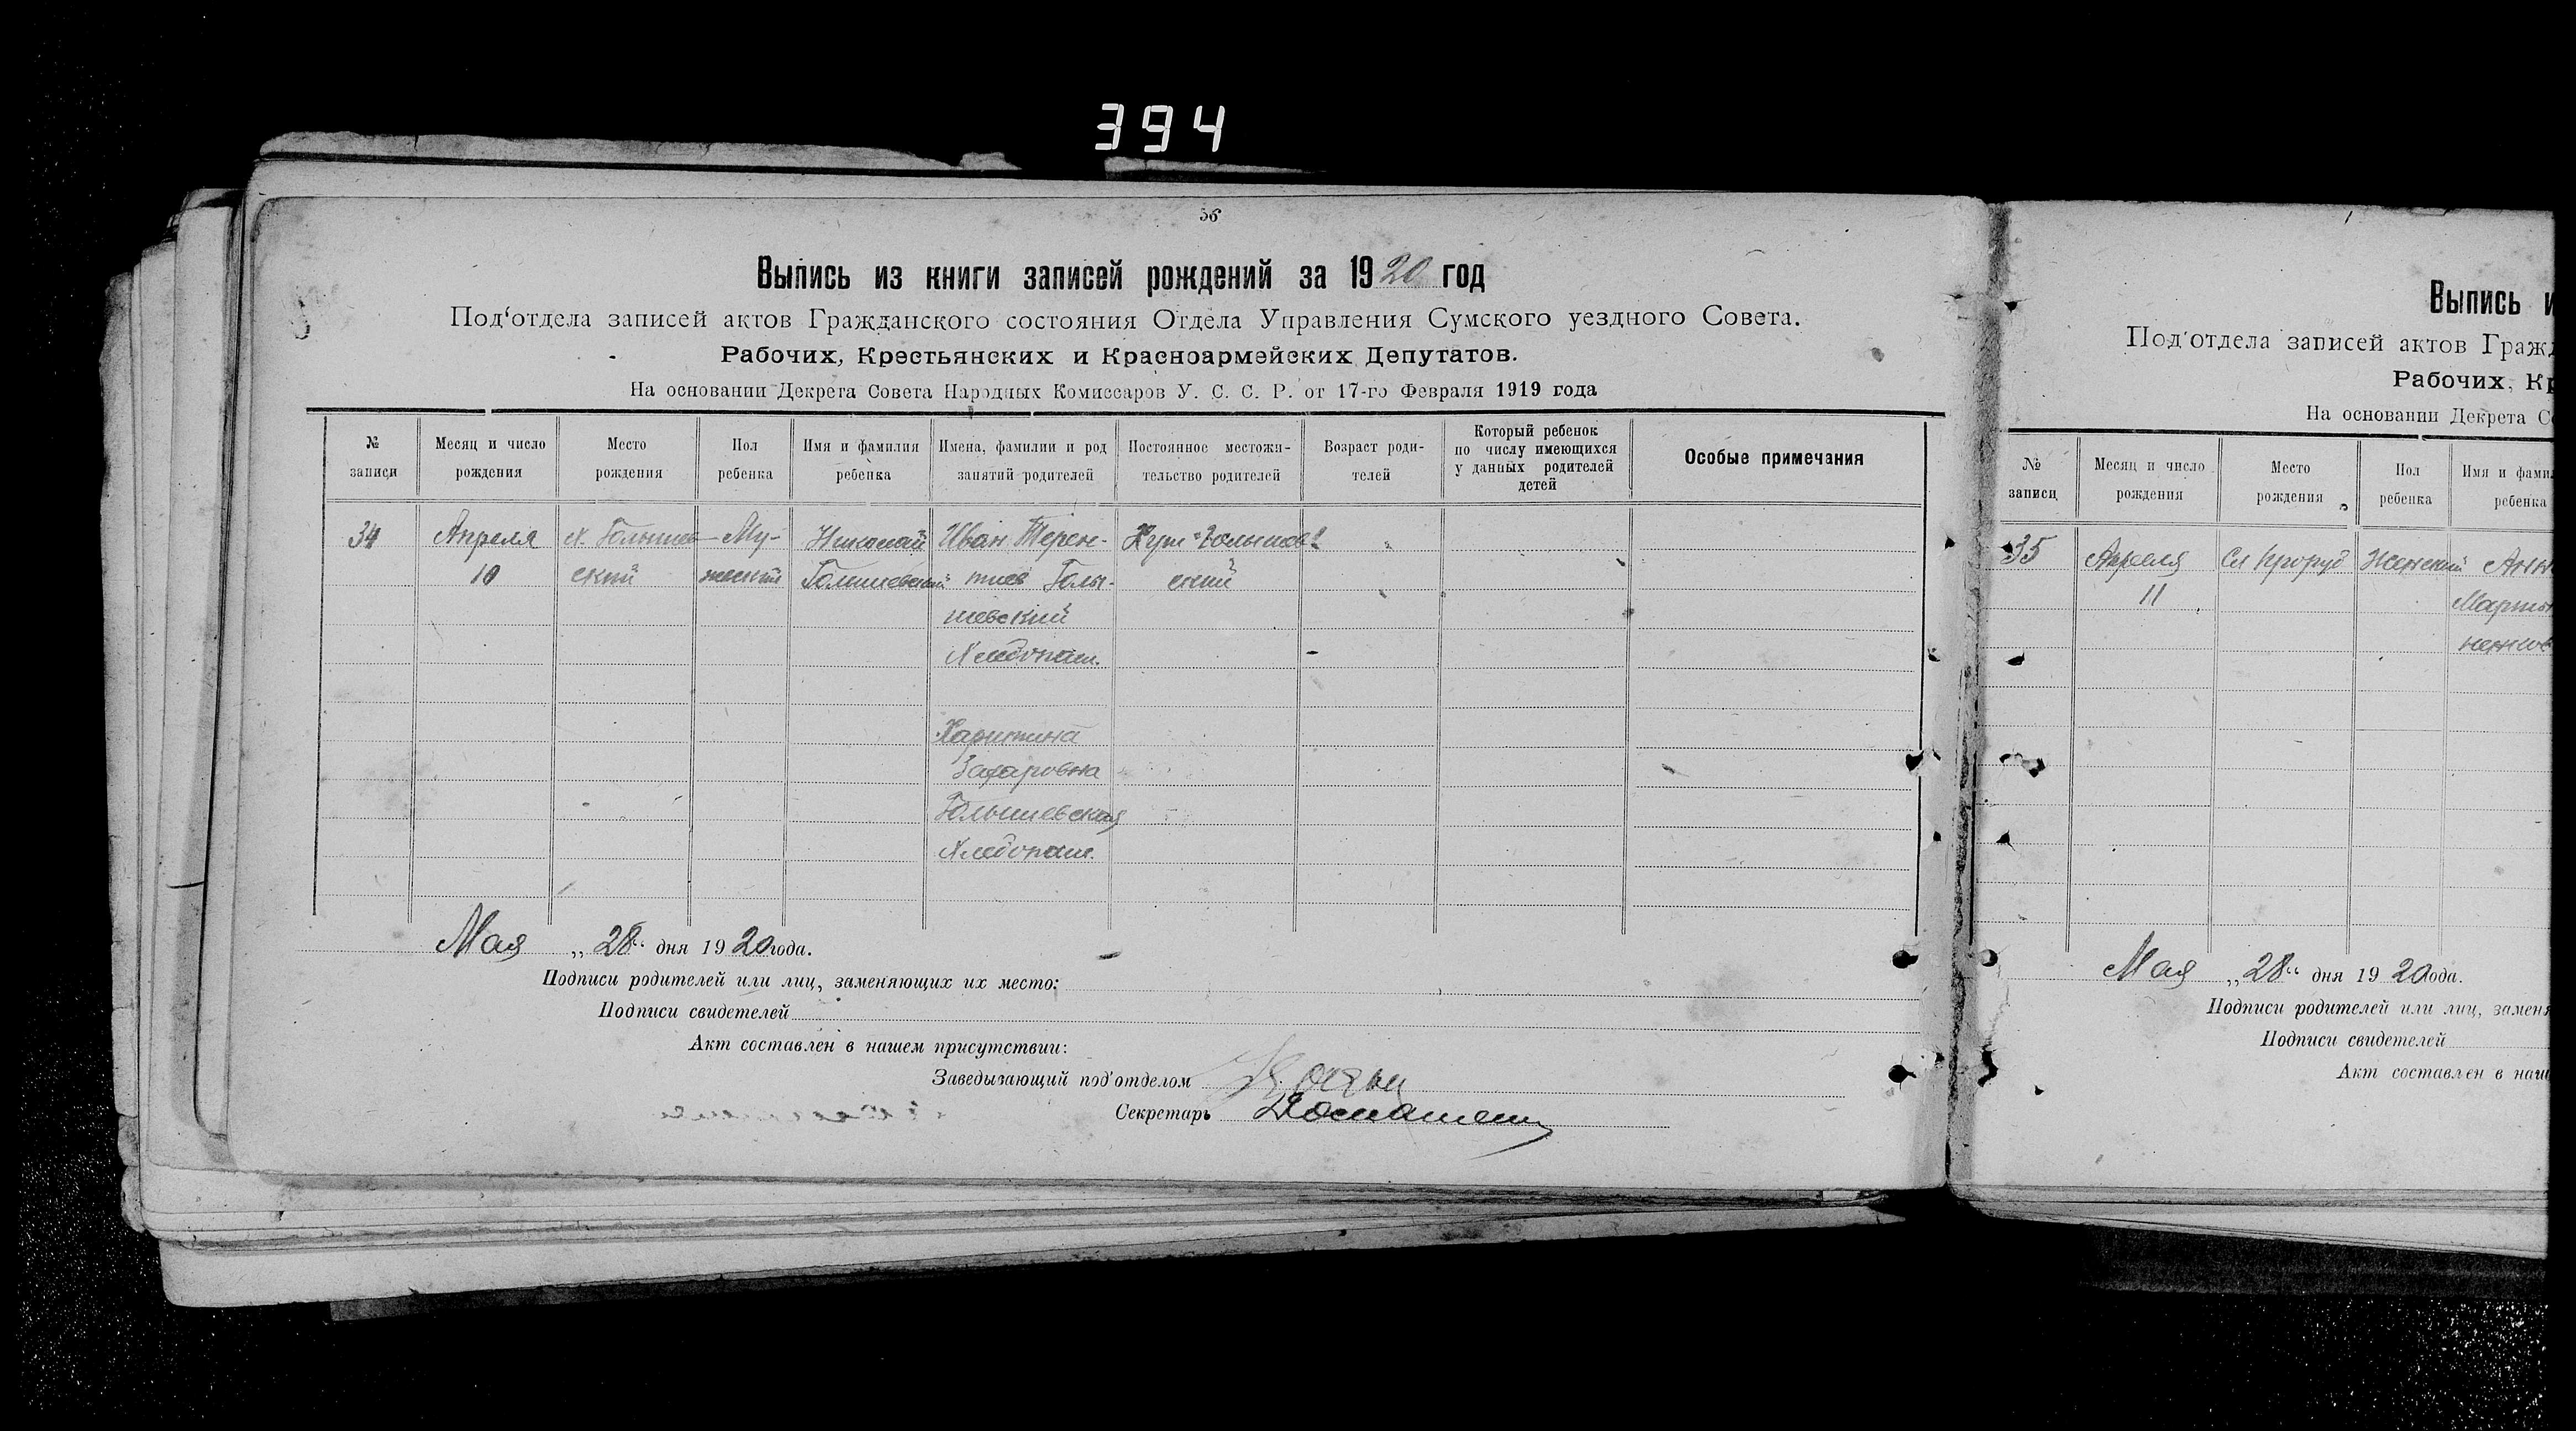 394
56
Выпись из книги записей рождений за 1920 год
Под‘отдела записей актов Гражданского состояния Отдела Управления Сумского уездного Совета.
Рабочих, Крестьянских и Красноармейских Депутатов.
На основании Декрета Совета Народных Комиссаров У. С. С. Р. от 17-го Февраля 1919 года
№ записи
Месяц и число рождения
Место рождения
Пол ребенка
Имя и фамилия ребенка
Имена, фамилии и род занятий родителей
Постоянное местожи-
тельство родителей
Возраст роди-
телей
Который ребенок
по числу имеющихся
у данных родителей
детей
Особые примечания
34
Апреля
10
х. Голышев-
ский
Му-
жеский
Николай
Голышевский
Иван Терен-
тиев Голы-
шевский
Хлебопаш.
Харитина
Захаровна
Голышевская
Хлебопаш.
Хут. Голышев
ский
Мая „28“ дня 1920 года.
Подписи родителей или лиц, заменяющих их место:
Подписи свидетелей
Акт составлен в нашем присутствии:
Заведывающий под‘отделом
Секретарь
Выпись и
Под‘отдела записей актов Гражд
Рабочих, Кр
На основании Декрета Со
№ записи
Месяц и число рождения
Место рождения
Пол ребенка
Имя и фамил
ребенка
35
Апреля
11
Женский
Мая „28“ дня 1920 ода.
Подписи родителей или лиц, заменя
Подписи свидетелей
Акт составлен в наш